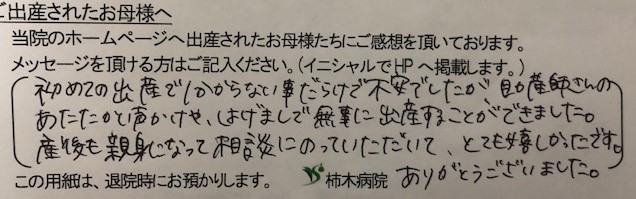 ご出産されたお母様へ
当院のホームページへ出産されたお母様たちにご感想を頂いております。
メッセージを頂ける方はご記入ください。(イニシャルでHPへ掲載します。)
初めての出産で分からない事だらけで不安でしたが、助産師さんの
あたたかい声かけや、はげましで無事に出産することができました。
産後も親身になって相談にのっていただいて、とても嬉しかったです。
ありがとうございました。
この用紙は、退院時にお預かりします。 柿木病院